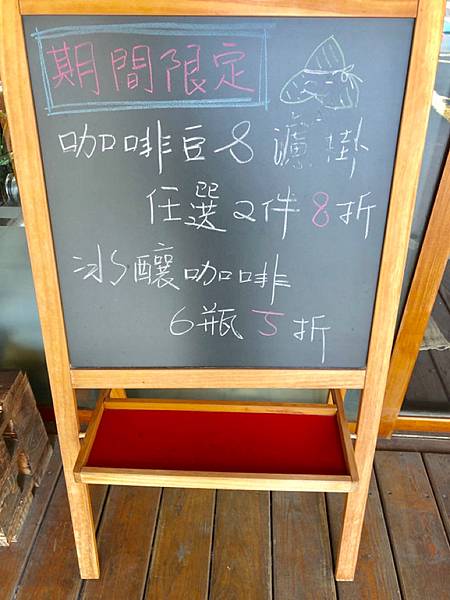 期間限定
咖啡豆&濾掛
任選2件8折
冰釀咖啡
6瓶5折